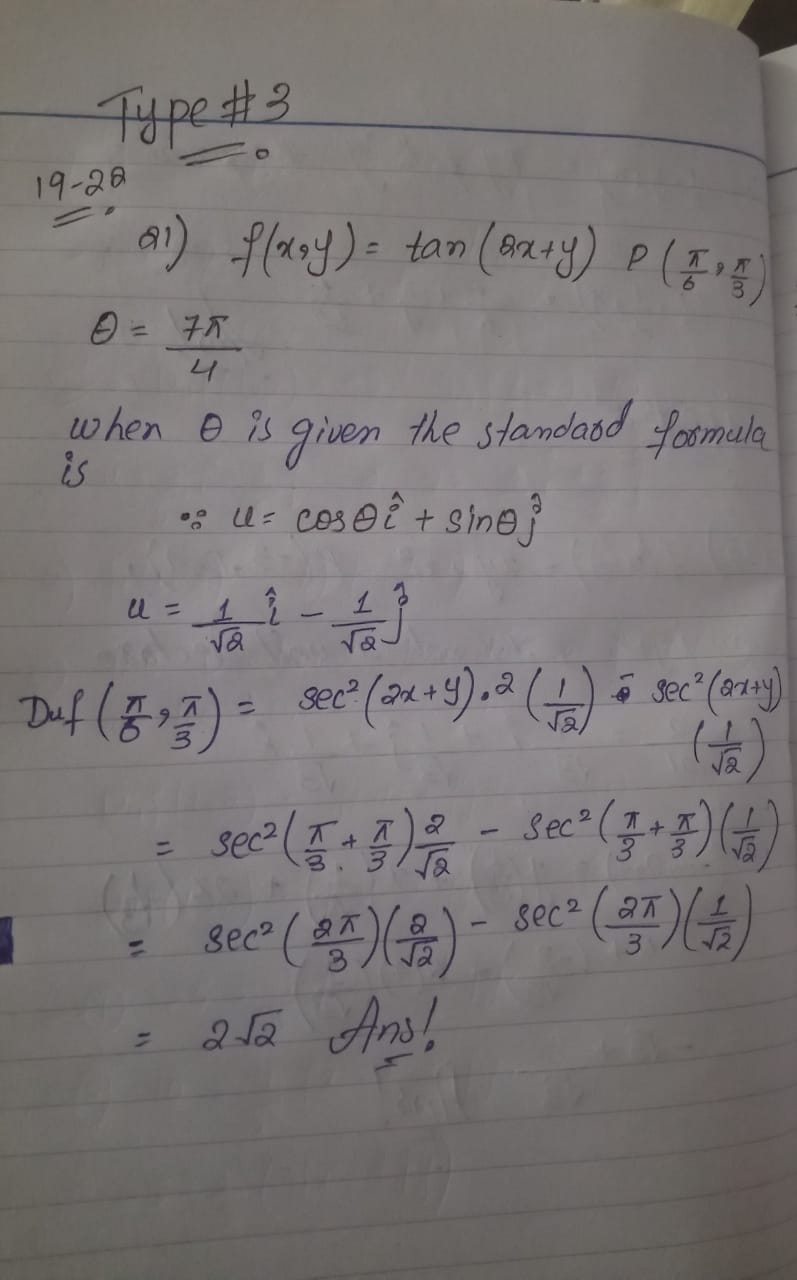 Type #3
19-22
21) f(x,y) = tan(2x+y) P(π/6, π/3)
θ = 7π/4
when θ is given the standard formula
is
∵ u = cosθ î + sinθ ĵ
u = 1/√2 î - 1/√2 ĵ
Duf(π/6, π/3) = sec²(2x+y).2(1/√2) - sec²(2x+y)
(1/√2)
= sec²(π/3 + π/3) 2/√2 - sec²(π/3 + π/3)(1/√2)
= sec²(2π/3)(2/√2) - sec²(2π/3)(1/√2)
= 2√2 Ans!